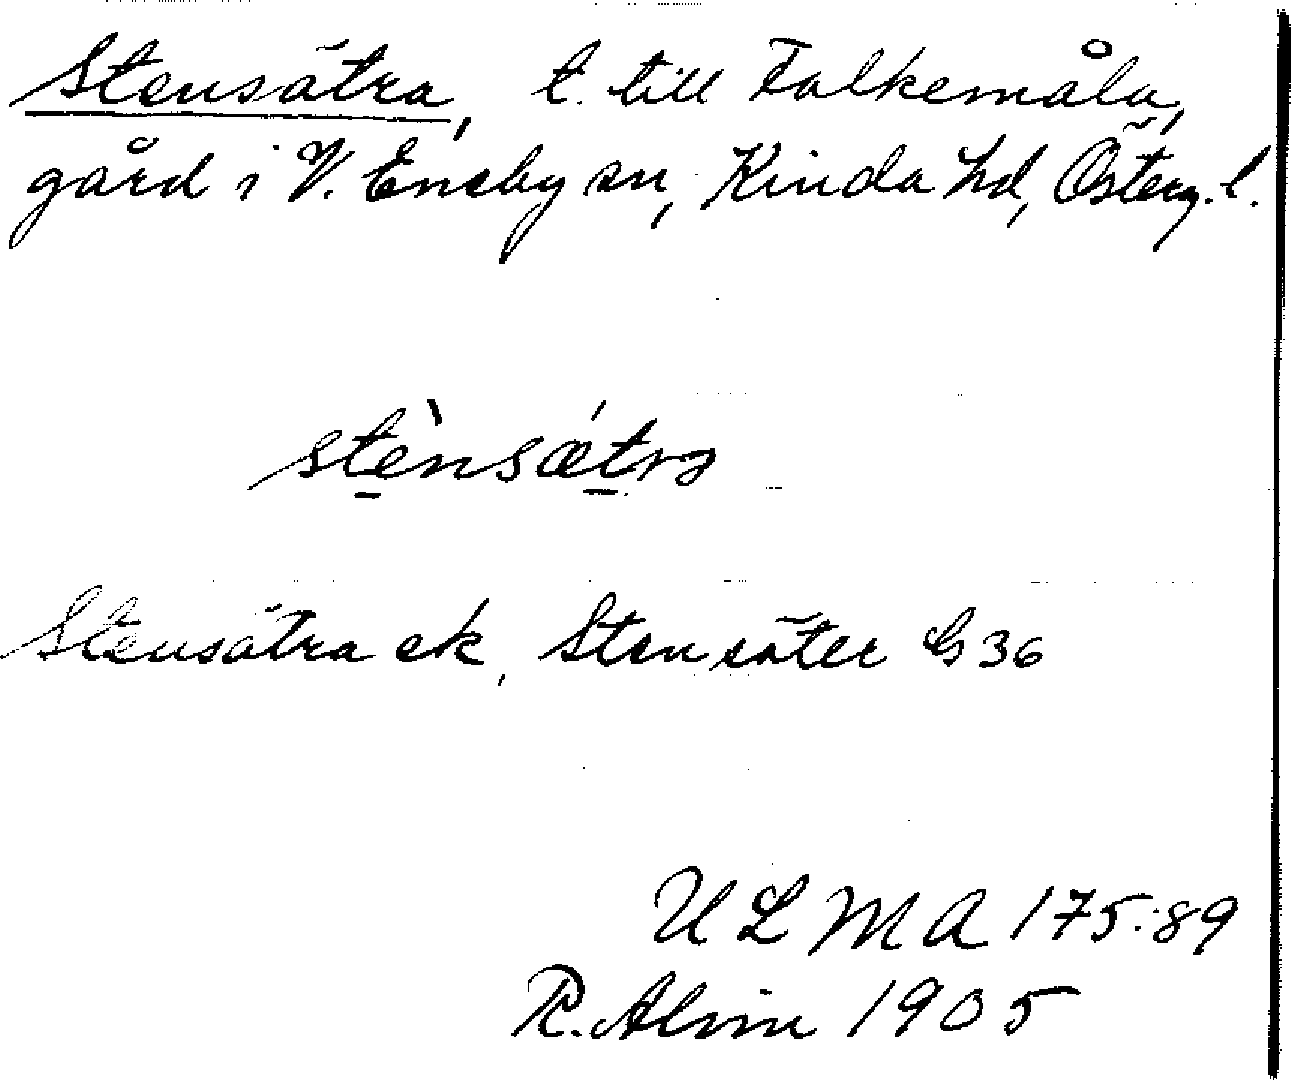 Stensätra, t. till Falkemåla,
gård i V. Eneby sn, Kinda hd, Österg. l.
stènsǽtra
Stensätra ek, Stensäter G 36
ULMA 175:89
R. Alvin 1905